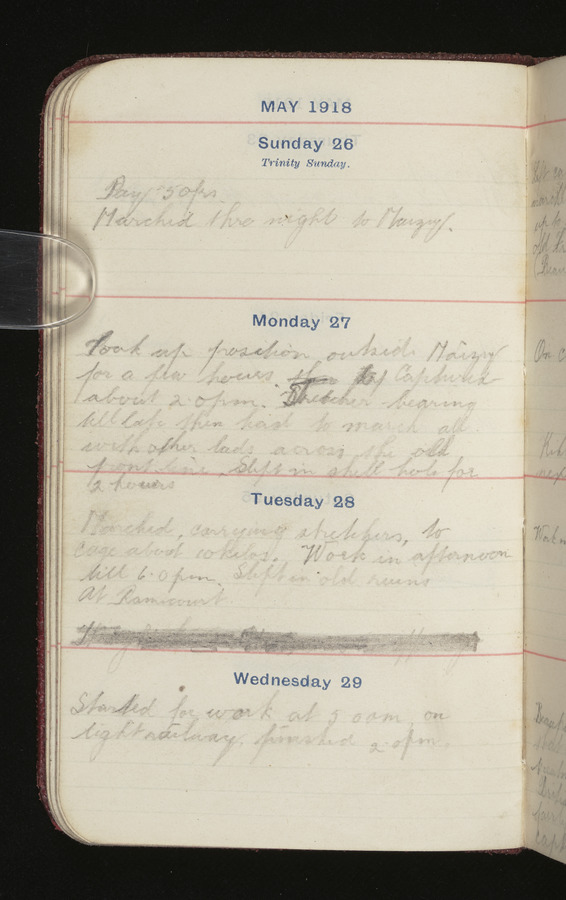 MAY 1918
Sunday 26
Trinity Sunday.
Pay 50frs.
Marched thro night to Maizy.
Monday 27
Took up position outside Maizy
for a few hours. Captured
about 2.0pm. Stretcher bearing
till late then had to march
with other lads across the old
front line. Slept in shell hole for
2 hours
Tuesday 28
Marched, carrying stretchers, to
cage about 10 kilos. Work in afternoon
till 6.0pm. Slept in old ruins
at Ramicourt
Wednesday 29
Started for work at 5 0am on
light railway, finished 2.0pm.
On
Work